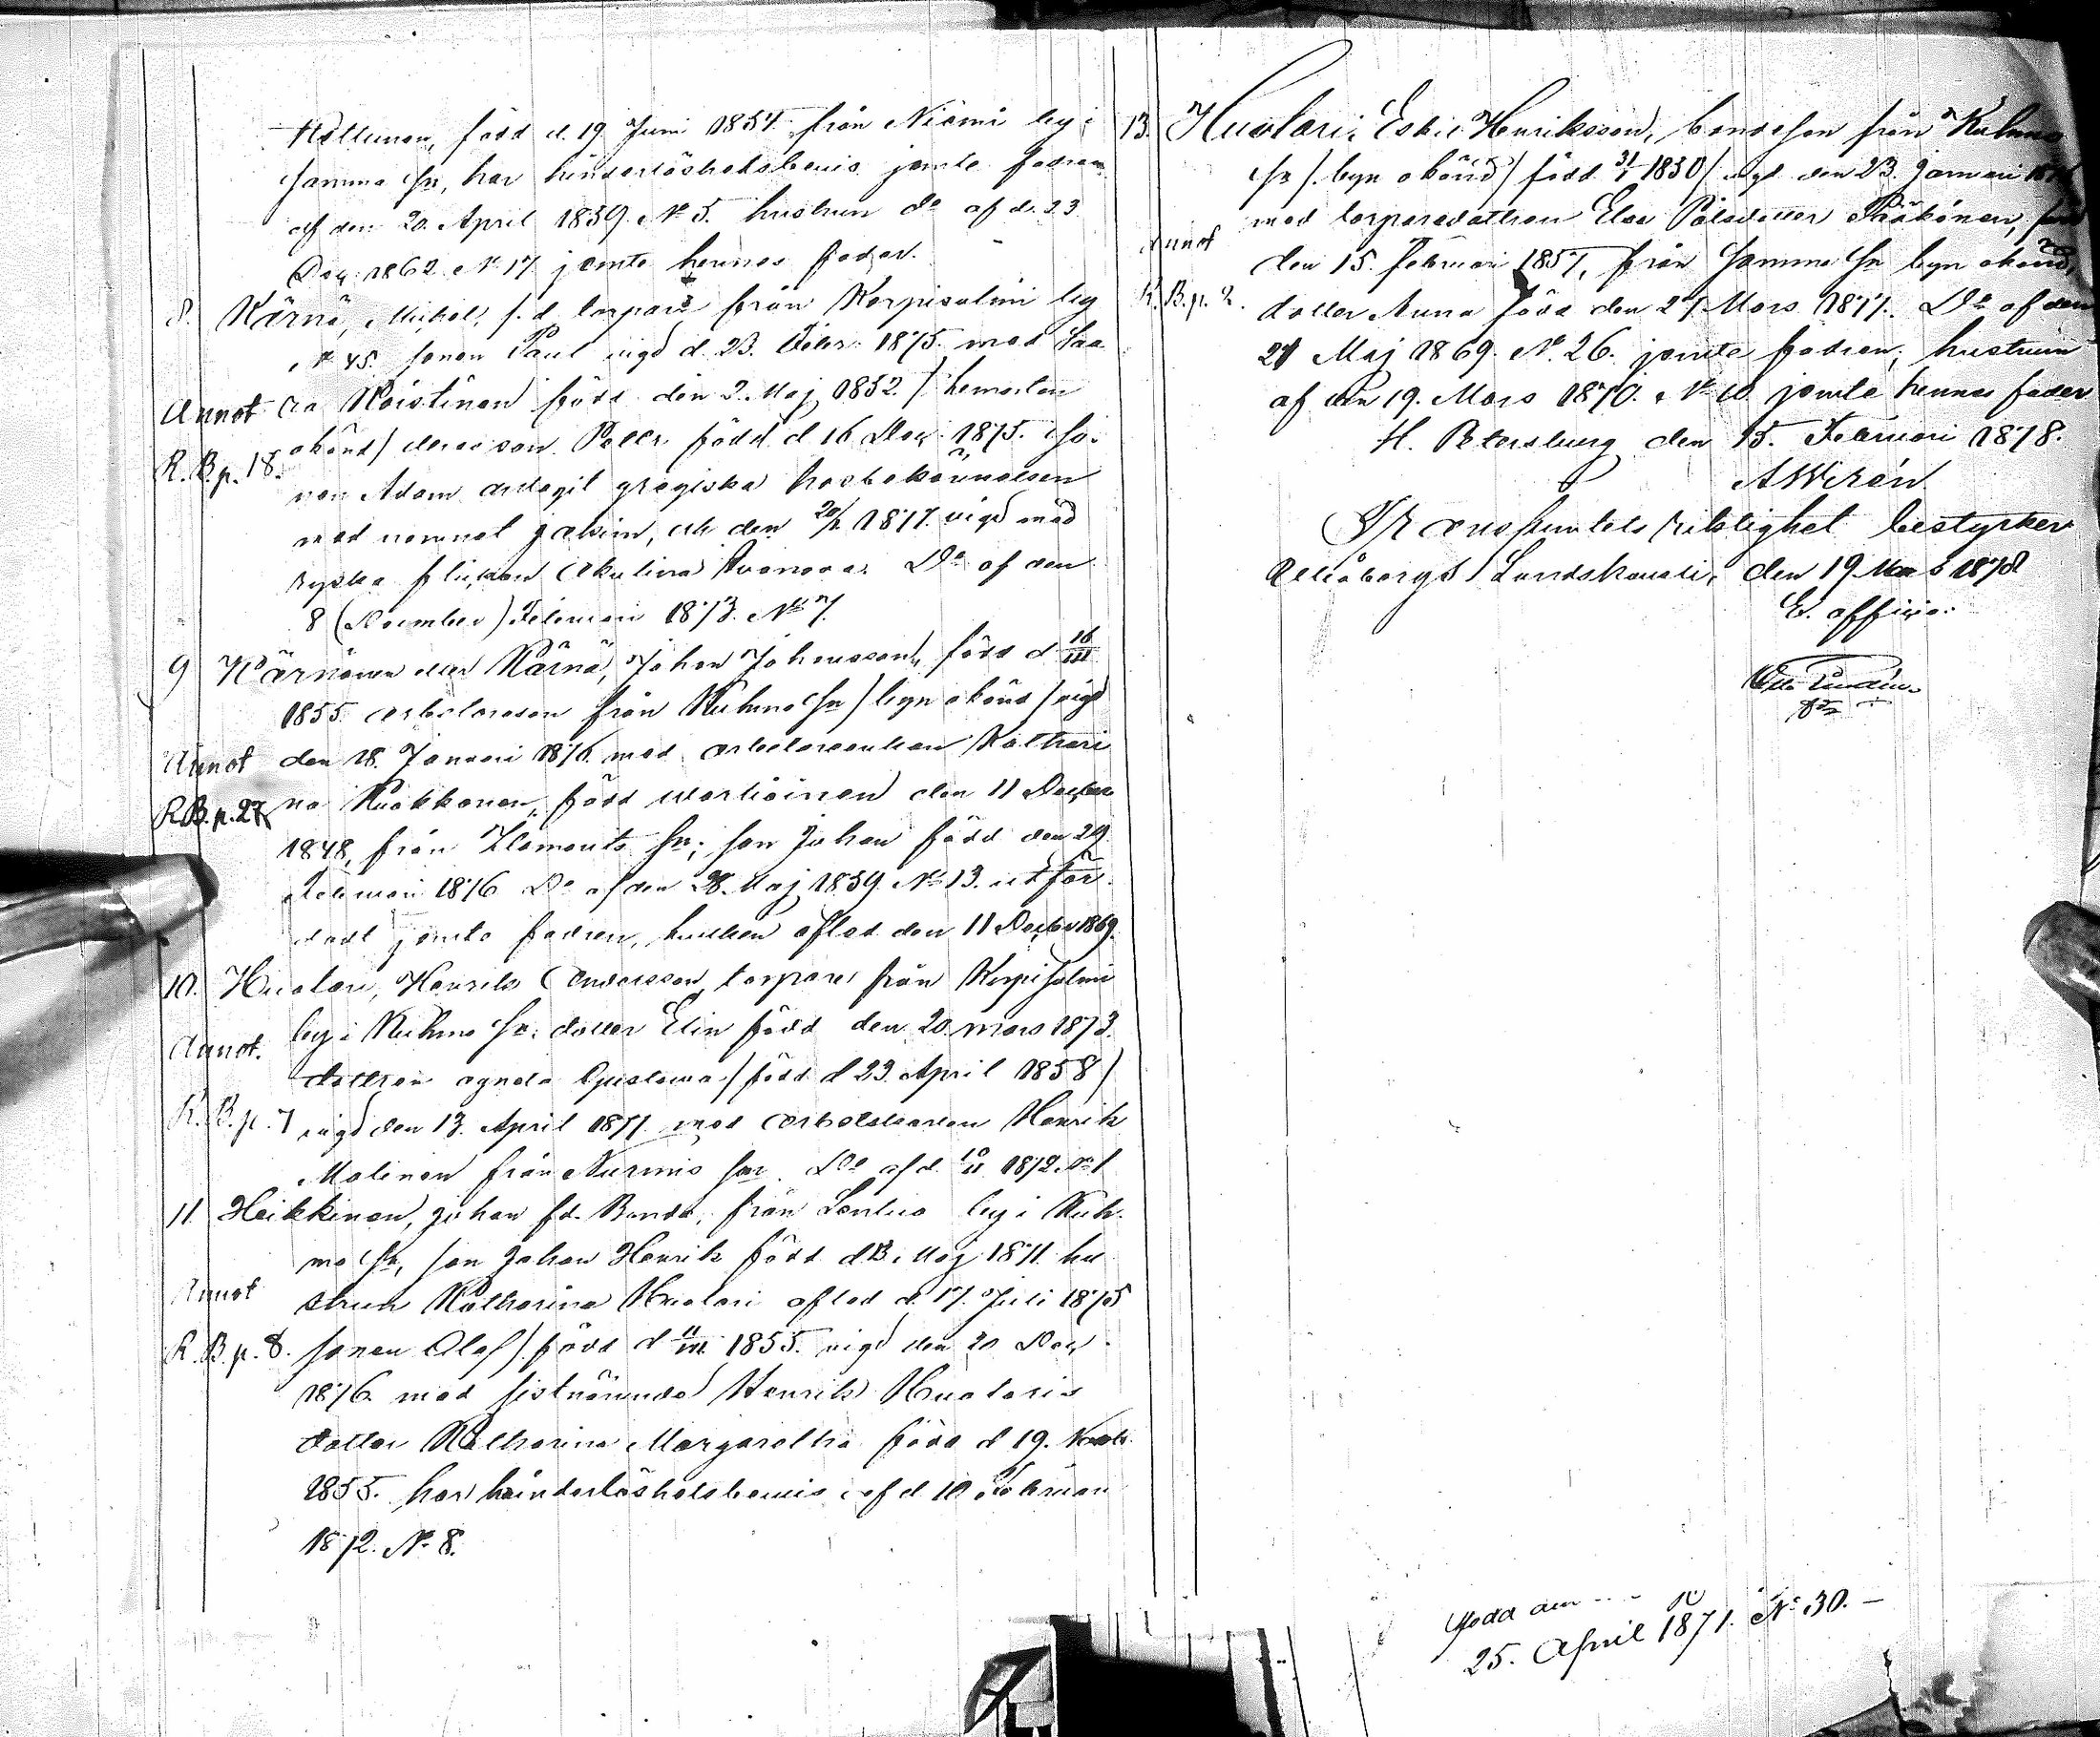 Hiltunen, född d. 19 Juni 1854 från Niemi by i
samma Sn, har hinderlöshetsbevis jemte fadren
af den 20. April 1859. No 5. hustrun Do af d. 23
Dec. 1862 No 17 jemte hennes fader.
8. Kärnä, Mikel, f. d. torpare från Korpisalmi by
No 45. sonen Paul vigd d. 23. 1875. med Saa-
Annot ra Koistinen född den 2. Maj 1852. / hemorten
R. B. p. 18. okänd / deras son Petter född d 16 Dec. 1875. So-
nen Adam antagit grekiska trosbekännelsen
med namnet Jakim, och den 1877. vigd med
ryska flickan Akulina Ivanova. Do af den
8 (December) Februari 1873. No 7.
9 Kärnänen eller Kärnä, Johan Johansson, född d 16/III
1855. arbetareson från Kuhmo Sn / byn okänd / vigd
Annot den 18. Januari 1876. med arbetareenkan Kathari
R.B. p. 27 na Kuokkanen, född Wartiainen den 11 Decber
1848, från Ilomants Sn; son Johan född den 29
Februari 1876 Do af den 28. Maj 1859 No 13. utfär-
dadt jemte fadren, hvilken afled den 11 Decber 1869.
10. Huotari, Henrik Andersson, torpare från Korpisalmi
by i Kuhmo Sn. dotter Elin född den 20. mars 1873.
Annot. dottren Agneta Gustawa / född d 23 April 1858 /
R. B. p. 7 vigd den 13. April 1877. med arbetskarlen Henrik
Malinen från Nurmis Sn. Do af d. 10/II 1872. No 1
11. Heikkinen, Johan fd. Bonde, från Lentua by i Kuh-
mo Sn, son Johan Henrik född d 13. Maj 1871. hu-
Annot strun Katharina Huotari afled d. 17. Juli 1875
R. B. p. 8. sonen Olof / född d 11/III 1855. vigd den 20 Dec.
1876. med sistnämnde Henrik Huotaris
dotter Katharina Margaretha född d 19. Novb.
1855. har hinderlöshetsbevis af d. 10 Februari
1872. No 8.
13. Huotari, Eskil Henriksson, bondeson från Kuhmo
Sn /. byn okänd / född 31/1 1850 / vigd den 23. Januari
Annot med torparedottren Elsa Pålsdotter född
den 15. Februari 1857, från samma Sn byn okänd,
K. B. p. 2. dotter Anna född den 27. Mars 1877. Do af den
21 Maj 1869. No. 26. jemte fadren; hustrun
af den 19. Mars 1870. No 10 jemte hennes fader
St. Petersburg den 15. Februari 1878.
A Wirén
Transsumtets riktighet bestyrker
Uleåborgs Landskansli, den 19 Mars 1878
Ex officio:
född den
25. April 1871. No 30. —